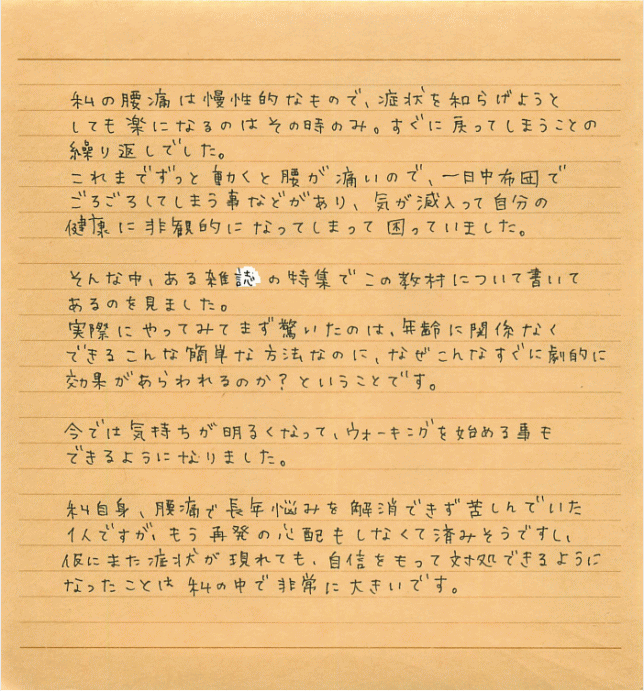 私の腰痛は慢性的なもので、症状を和らげようと
しても楽になるのはその時のみ。すぐに戻ってしまうことの
繰り返しでした。
これまでずっと動くと腰が痛いので、一日中布団で
ごろごろしてしまう事などがあり、気が滅入って自分の
健康に非観的になってしまって困っていました。
そんな中、ある雑誌の特集でこの教材について書いて
あるのを見ました。
実際にやってみてまず驚いたのは、年齢に関係なく
できるこんな簡単な方法なのに、なぜこんなすぐに劇的に
効果があらわれるのか？ということです。
今では気持ちが明るくなって、ウォーキングを始める事も
できるようになりました。
私自身、腰痛で長年悩みを解消できず苦しんでいた
1人ですが、もう再発の心配もしなくて済みそうですし、
仮にまた症状が現れても、自信をもって対処できるように
なったことは私の中で非常に大きいです。